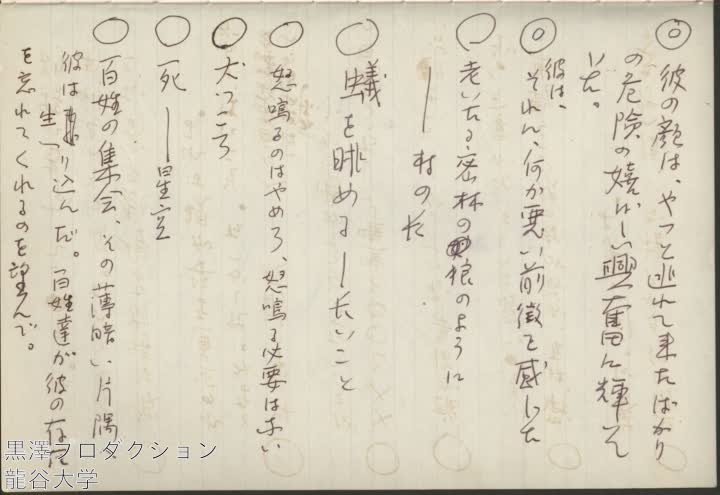 ◎ 彼の顔は、やっと逃れて来たばかり
の危険の嬉しい興奮に輝いて
いた。
◎ 彼は、それに、何か悪い前徴を感じた
○ 老いたる密林の狼のように
──村の長
○ 蟻を眺める──長いこと
○ 怒鳴るのはやめろ、怒鳴る必要はない
○ 犬っころ
○ 死──星空
○ 百姓の集会、その薄暗い片隅へ
彼は坐り込んだ。百姓達が彼の存在
を忘れてくれるのを望んで。
黒澤プロダクション
龍谷大学